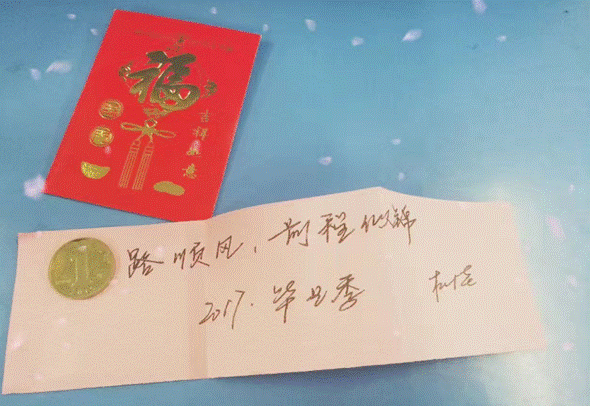 福
吉祥如意
1
路顺风，前程似锦
2017.毕业季